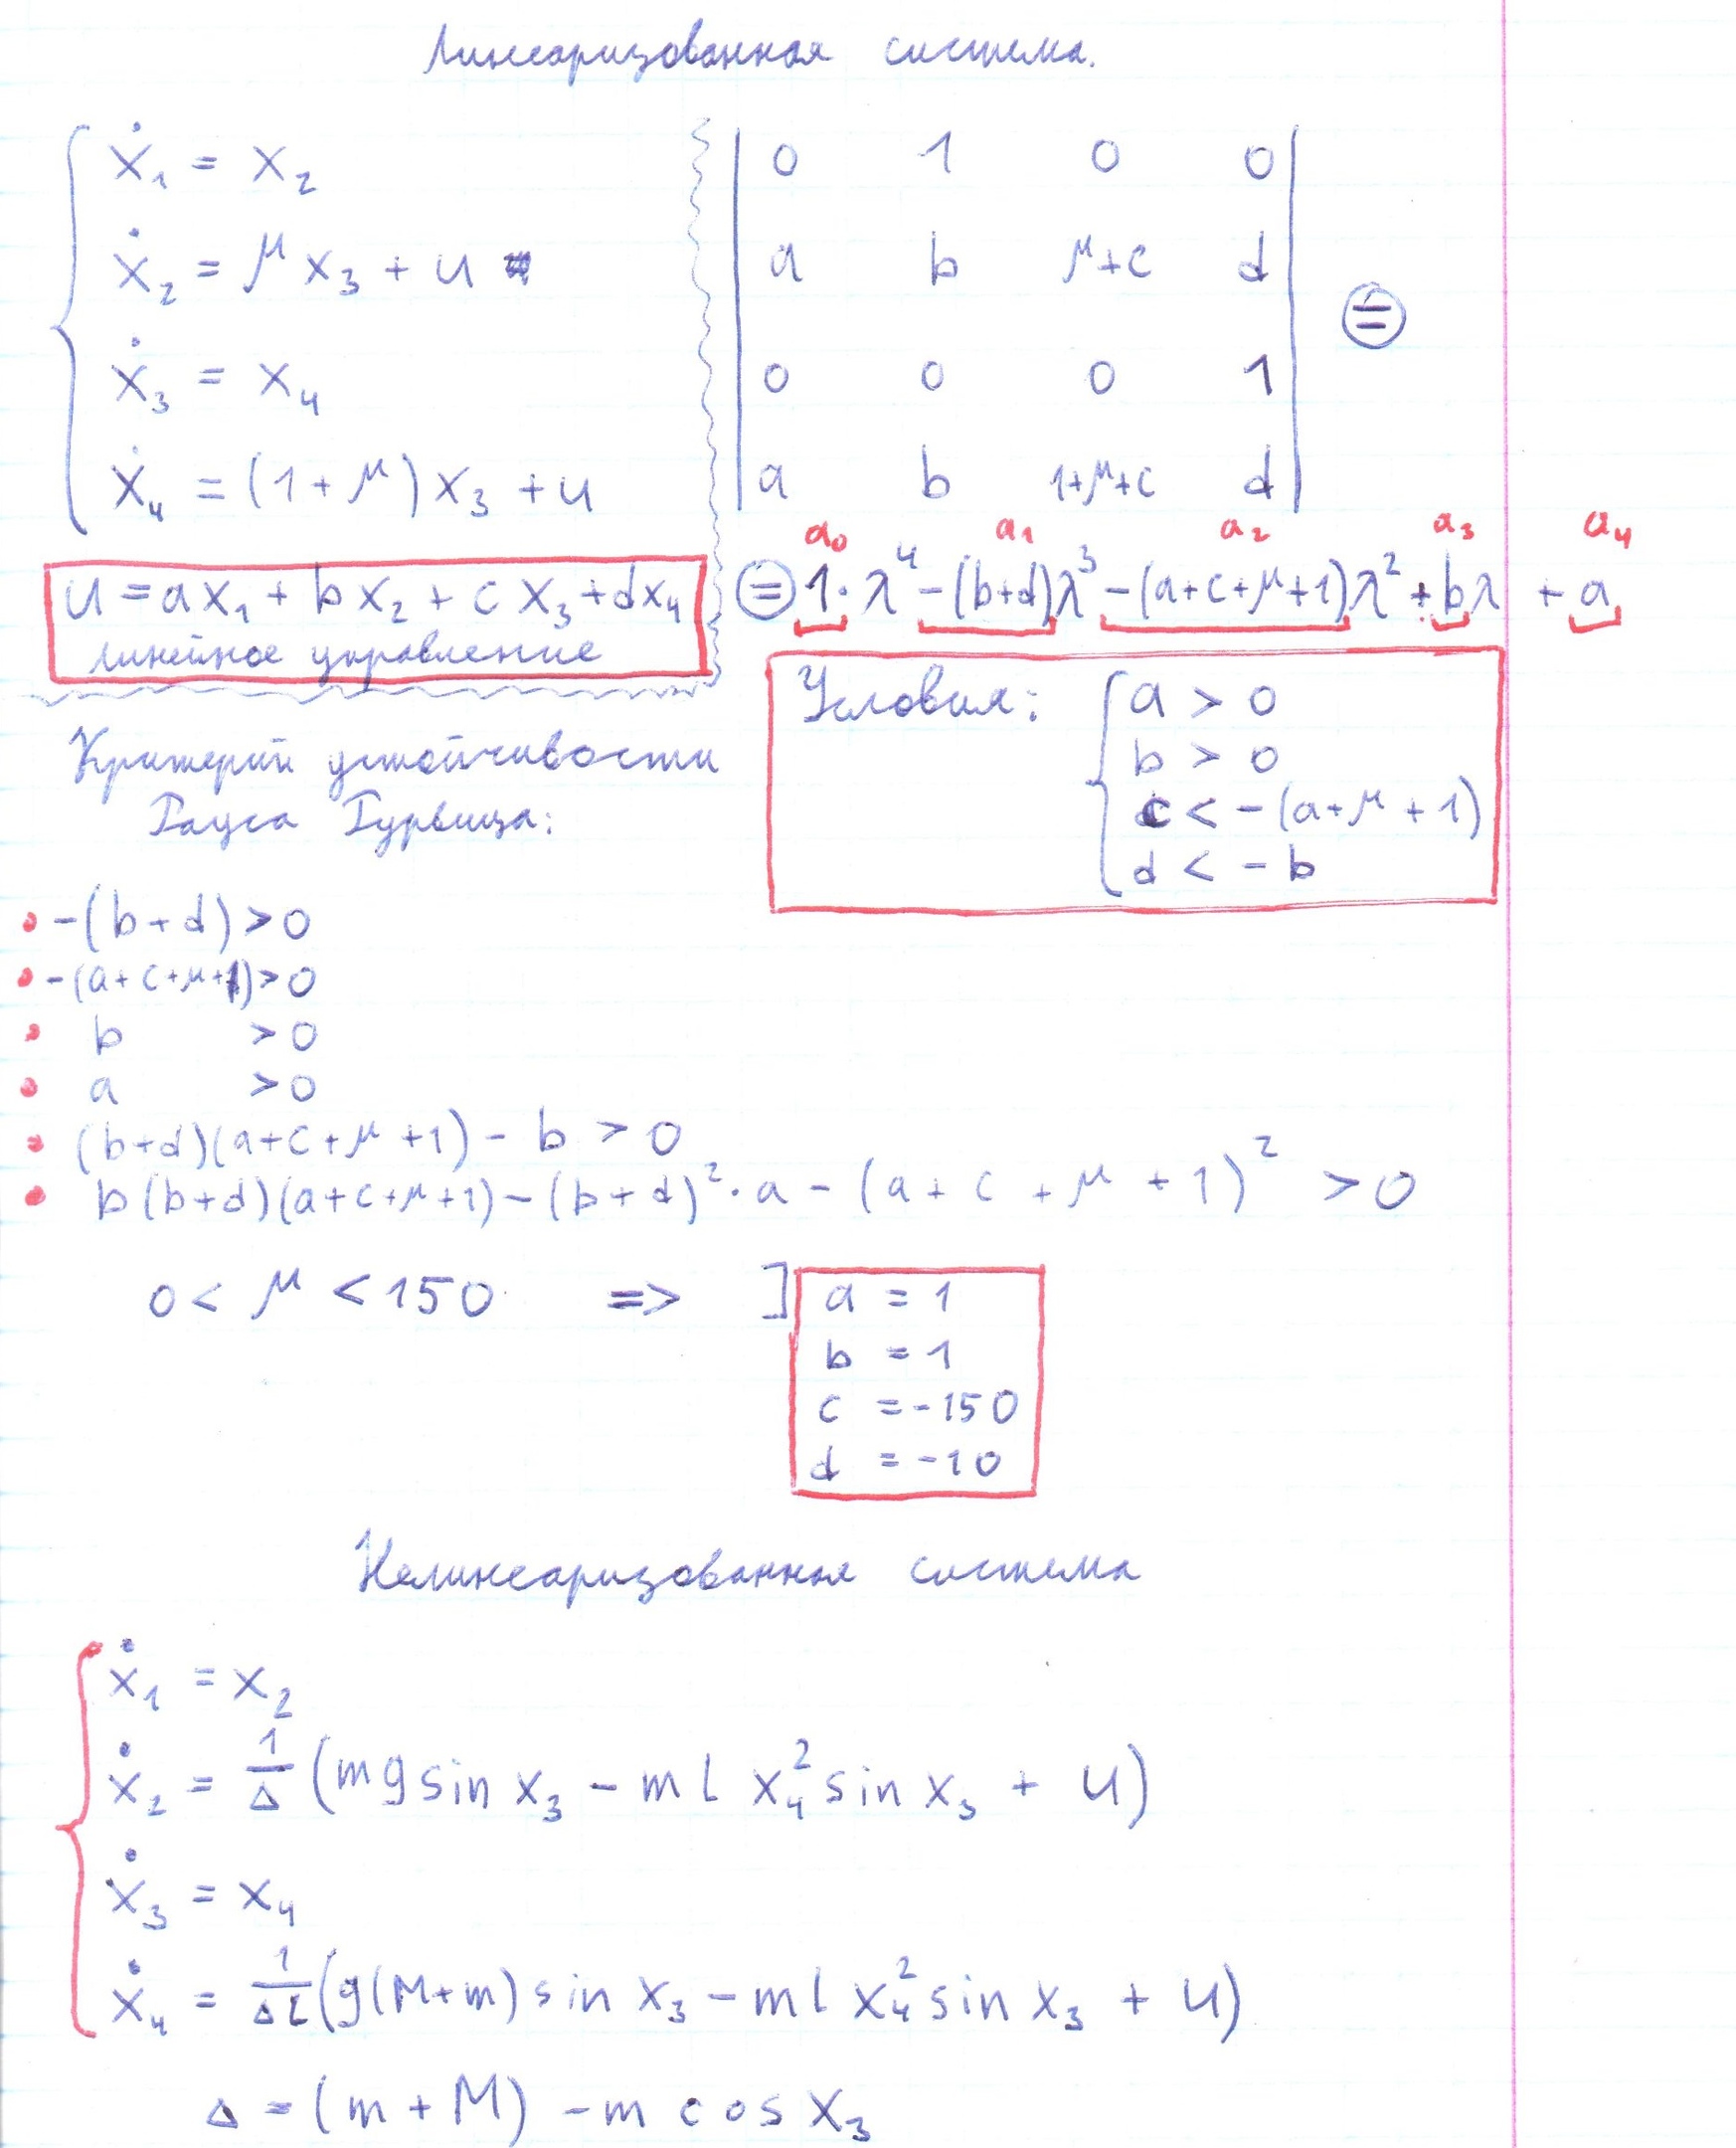 Линеаризованная система.
ẋ₁ = x₂
ẋ₂ = μx₃ + u
ẋ₃ = x₄
ẋ₄ = (1+μ)x₃ + u
u = ax₁ + bx₂ + cx₃ + dx₄
линейное управление
0 1 0 0
a b μ+c d
0 0 0 1
a b 1+μ+c d
=
a₀ a₁ a₂ a₃ a₄
= 1·λ⁴ -(b+d)λ³ -(a+c+μ+1)λ² + bλ + a
Условия: a > 0
b > 0
c < -(a+μ+1)
d < -b
Критерий устойчивости
Рауса Гурвица:
• -(b+d) > 0
• -(a+c+μ+1) > 0
• b > 0
• a > 0
• (b+d)(a+c+μ+1) - b > 0
• b(b+d)(a+c+μ+1) - (b+d)²·a - (a+c+μ+1)² > 0
0 < μ < 150 => ] a = 1
b = 1
c = -150
d = -10
Нелинеаризованная система
ẋ₁ = x₂
ẋ₂ = 1/Δ (mg sin x₃ - ml x₄² sin x₃ + u)
ẋ₃ = x₄
ẋ₄ = 1/ΔL (g(M+m) sin x₃ - ml x₄² sin x₃ + u)
Δ = (m + M) - m cos x₃